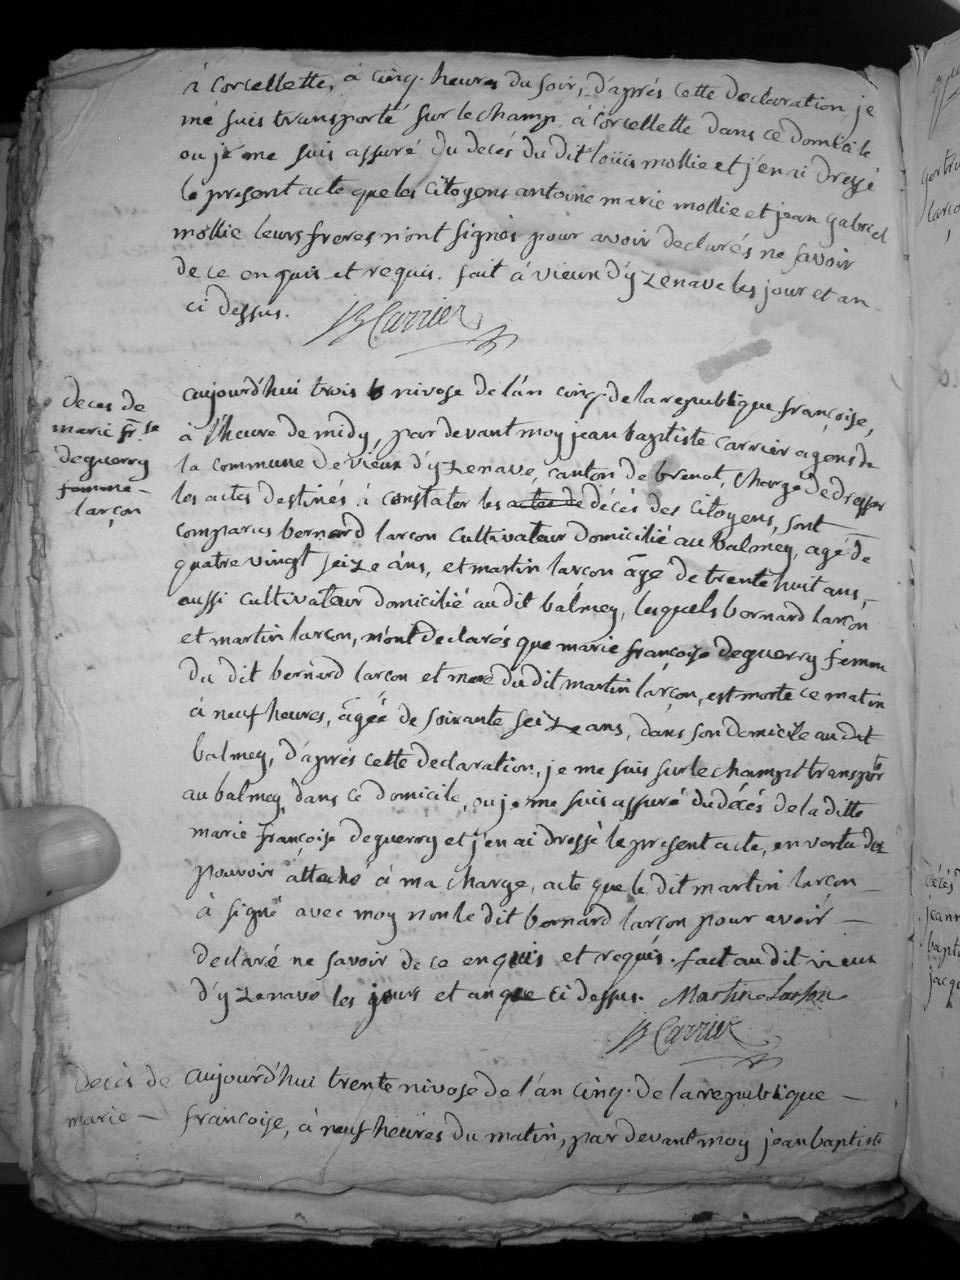 à Corcellette, à cinq heures du soir, d'après cette declaration, je
mé suis transporté sur le champ à Corcellette dans ce domicile
ou je me suis assuré du decés du dit loüis mollie et j'en ai dressé
le present acte que les Citoyens antoine marie mollie et jean gabriel
mollie leurs freres n'ont signés pour avoir declarés ne savoir
de ce enquis et requis. fait á vieux d'yzenave les jour et an
ci dessus. JB Carrier
deces de
marie fr.se
deguerry
femme
larçon
aujourd'huï trois nivose de l'an cinq de la republique françoise,
à l'heure de midy, par devant moy jean baptiste carrier agens de
la commune de vieux d'yzenave, canton de brenot, chargé de dresser
les actes destinés à constater les actes de décès des citoyens, sont
comparus bernard larcon cultivateur domicilié au balmey, agé de
quatre vingt seize ans, et martin larcon âgé de trente huit ans,
aussi cultivateur domicilié au dit balmey, lesquels bernard larcon
et martin larcon, m'ont declarés que marie françoise deguerry femme
du dit bernard larcon et mere du dit martin larçon, est morte ce matin
à neuf heures, âgée de soixante seize ans, dans son domicile au dit
balmey, d'après cette declaration, je me suis sur le champt transporté
au balmey dans ce domicile, ou je me suis assuré du décés de la ditte
marie françoise deguerry et j'en ai dressé le present acte, en vertu des
pouvoir áttaché à ma charge, acte que le dit martin larcon
à signé avec moy non le dit bernard larcon pour avoir
declaré ne savoir de ce enquis et requis. fait au dit vieux
d'yzenave les jours et an que ci dessus. Martin Larson
JB Carrier
decès de
marie
aujourd'huï trente nivose de l'an cinq de la republique
françoise, à neuf heüres du matin, par devant moy jean baptiste
décès
jeann
bapti
jacqu